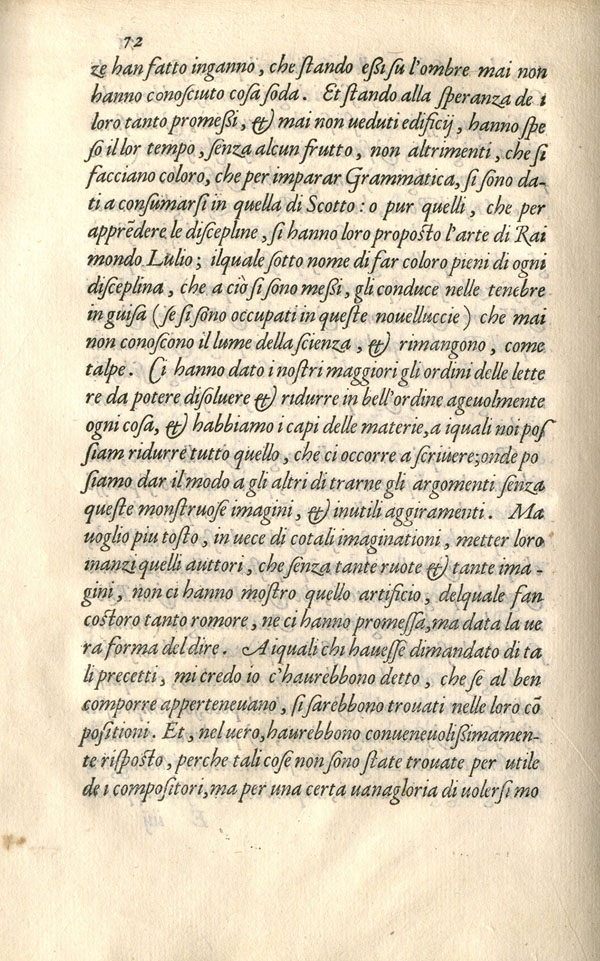 72
ze han fatto inganno, che ſtando eßi ſu l'ombre mai non
hanno conoſciuto coſa ſoda. Et ſtando alla ſperanza de i
loro tanto promeßi, & mai non ueduti edificij, hanno ſpe
ſo il lor tempo, ſenza alcun frutto, non altrimenti, che ſi
facciano coloro, che per imparar Grammatica, ſi ſono da-
ti a conſumarſi in quella di Scotto: o pur quelli, che per
apprẽdere le diſcepline, ſi hanno loro propoſto l'arte di Rai
mondo Lulio; ilquale ſotto nome di far coloro pieni di ogni
diſceplina, che a ciò ſi ſono meßi, gli conduce nelle tenebre
in guiſa (ſe ſi ſono occupati in queſte nouelluccie) che mai
non conoſcono il lume della ſcienza, & rimangono, come
talpe. Ci hanno dato i noſtri maggiori gli ordini delle lette
re da potere diſoluere & ridurre in bell'ordine ageuolmente
ogni coſa, & habbiamo i capi delle materie, a i quali noi poſ
ſiam ridurre tutto quello, che ci occorre a ſcriuere; onde po
ſiamo dar il modo a gli altri di trarne gli argomenti ſenza
queſte monſtruoſe imagini, & inutili aggiramenti. Ma
uoglio piu toſto, in uece di cotali imaginationi, metter loro
inanzi quelli auttori, che ſenza tante ruote & tante ima-
gini, non ci hanno moſtro quello artificio, delquale fan
coſtoro tanto romore, ne ci hanno promeſſa, ma data la ue
ra forma del dire. A i quali chi haueſſe dimandato di ta
li precetti, mi credo io c'haurebbono detto, che ſe al ben
comporre apperteneuano, ſi ſarebbono trouati nelle loro cõ
poſitioni. Et, nel uero, haurebbono conueneuolißimamen-
te riſpoſto, perche tali coſe non ſono ſtate trouate per utile
de i compoſitori, ma per una certa uanagloria di uolerſi mo